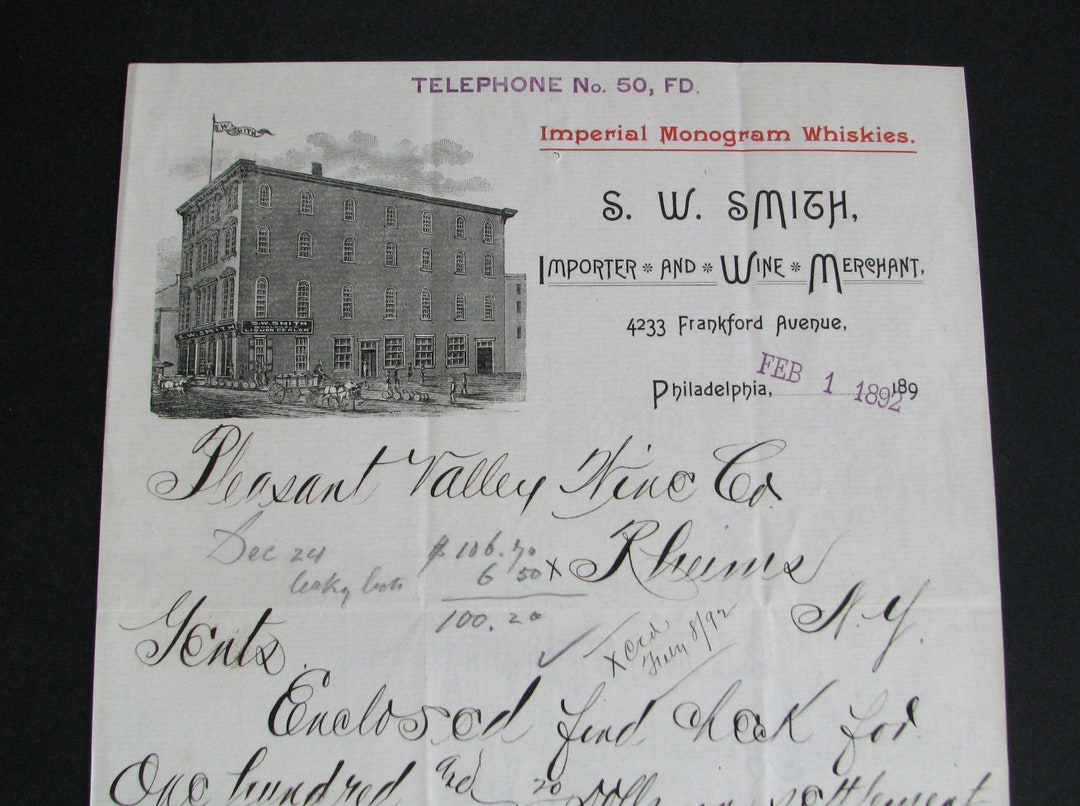 TELEPHONE No. 50, FD.
S.W. SMITH
Imperial Monogram Whiskies.
S. W. SMITH,
IMPORTER * AND * WINE * MERCHANT,
4233 Frankford Avenue,
Philadelphia, FEB 1 1892 189
S.W. SMITH
LIQUOR DEALER
S.W. SMITH
Pleasant Valley Wine Co.
Dec 24 $106.70
leaky 6 50 x Rheims
100.20
N.Y.
Gents.
x Cred.
Feby 8/92
Enclosed find check for
One hundred and 20 Dolls in settlement